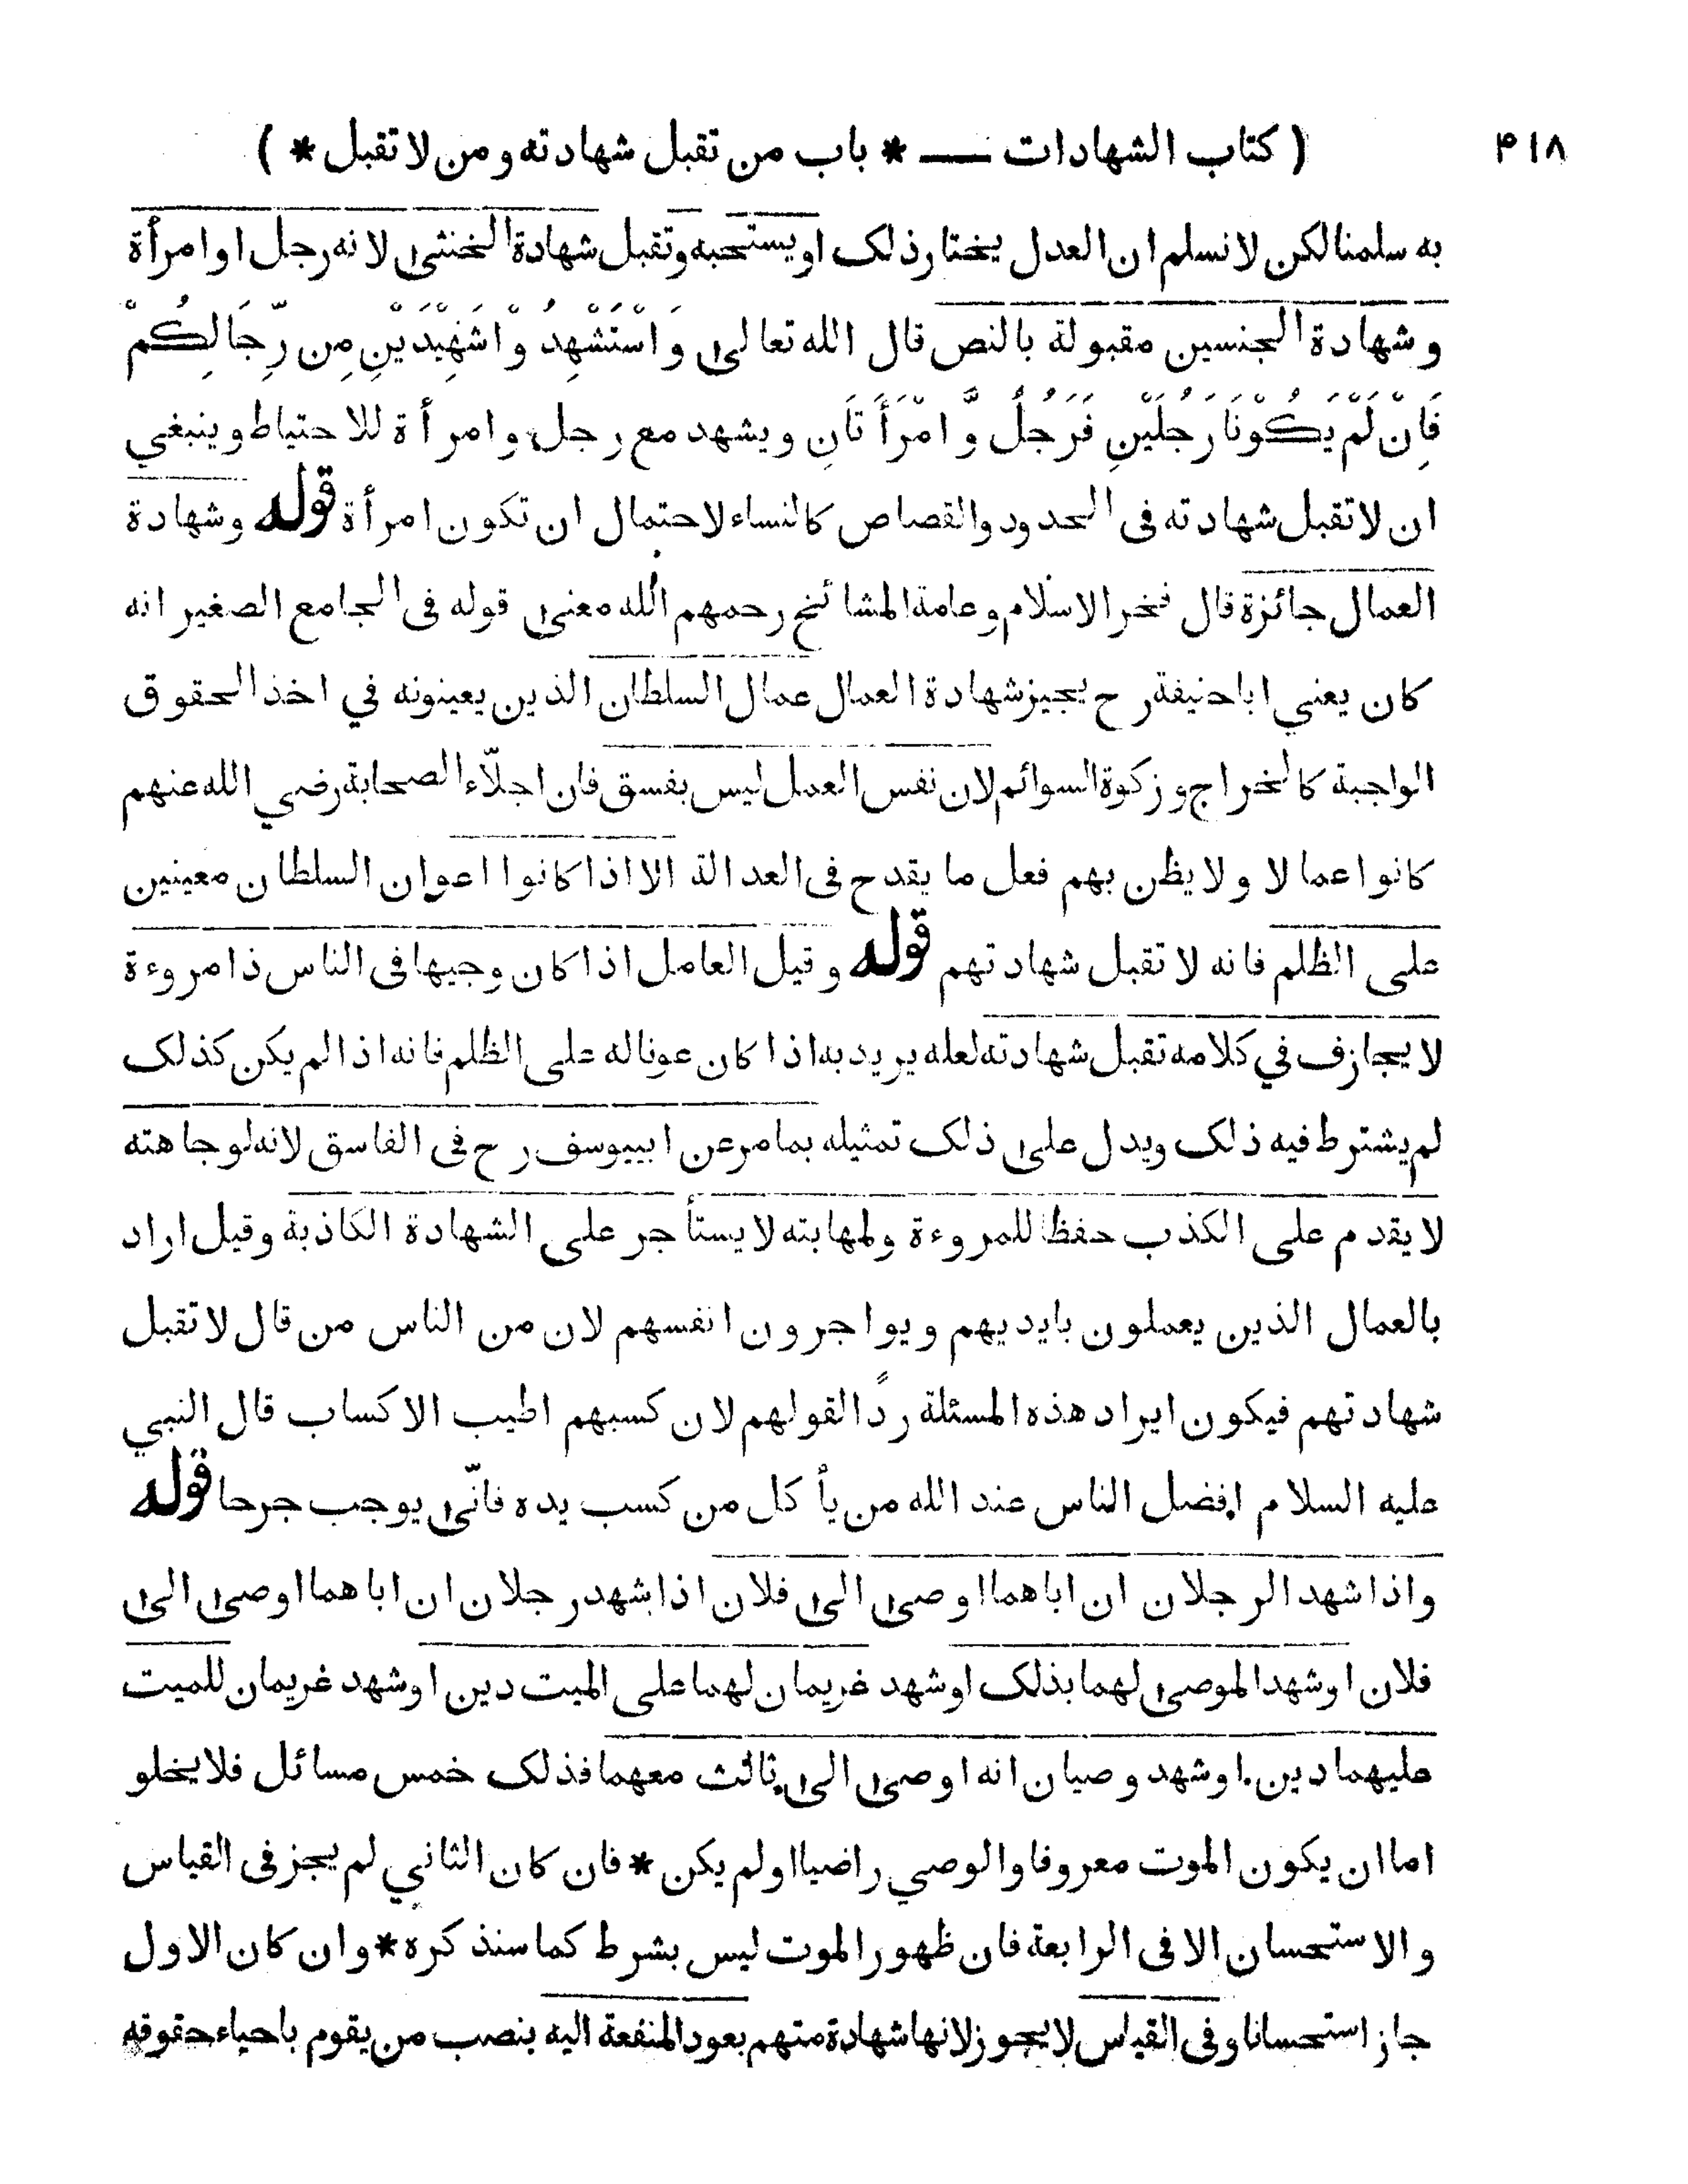 ٤١٨ ( كتاب الشهادات — * باب من تقبل شهادته ومن لا تقبل * )
به سلمنا لكن لا نسلم ان العدل يختار ذلك او يستحبه وتقبل شهادة الخنثى لانه رجل او امرأة
وشهادة الجنسين مقبولة بالنص قال الله تعالى وَاسْتَشْهِدُوْا شَهِيْدَيْنِ مِن رِّجَالِكُمْ
فَاِنْ لَمْ يَكُوْنَا رَجُلَيْنِ فَرَجُلٌ وَّ امْرَأَتَانِ ويشهد مع رجل وامرأة للاحتياط وينبغي
ان لا تقبل شهادته فى الحدود والقصاص كالنساء لاحتمال ان تكون امرأة قوله وشهادة
العمال جائزة قال فخر الاسلام وعامة المشائخ رحمهم الله معنى قوله فى الجامع الصغير انه
كان يعني ابا حنيفة رح يجيز شهادة العمال عمال السلطان الذين يعينونه في اخذ الحقوق
الواجبة كالخراج وزكوة السوائم لان نفس العمل ليس بفسق فان اجلّاء الصحابة رضي الله عنهم
كانوا عمالا ولا يظن بهم فعل ما يقدح فى العدالة الا اذا كانوا اعوان السلطان معينين
على الظلم فانه لا تقبل شهادتهم قوله وقيل العامل اذا كان وجيها فى الناس ذا مروءة
لا يجازف في كلامه تقبل شهادته لعله يريد به اذا كان عونا له على الظلم فانه اذا لم يكن كذلك
لم يشترط فيه ذلك ويدل على ذلك تمثيله بما مر عن ابييوسف رح فى الفاسق لانه لوجاهته
لا يقدم على الكذب حفظا للمروءة ولمهابته لا يستأجر على الشهادة الكاذبة وقيل اراد
بالعمال الذين يعملون بايديهم ويواجرون انفسهم لان من الناس من قال لا تقبل
شهادتهم فيكون ايراد هذه المسئلة ردًا لقولهم لان كسبهم اطيب الاكساب قال النبي
عليه السلام افضل الناس عند الله من يأكل من كسب يده فانّى يوجب جرحا قوله
واذا شهد الرجلان ان اباهما اوصى الى فلان اذا شهد رجلان ان اباهما اوصى الى
فلان او شهد الموصى لهما بذلك او شهد غريمان لهما على الميت دين او شهد غريمان للميت
عليهما دين او شهد وصيان انه اوصى الى ثالث معهما فذلك خمس مسائل فلا يخلو
اما ان يكون الموت معروفا والوصي راضيا او لم يكن * فان كان الثاني لم يجز فى القياس
والاستحسان الا فى الرابعة فان ظهور الموت ليس بشرط كما سنذكره * وان كان الاول
جاز استحسانا وفى القياس لا يجوز لانها شهادة متهم بعود المنفعة اليه بنصب من يقوم باحياء حقوقه